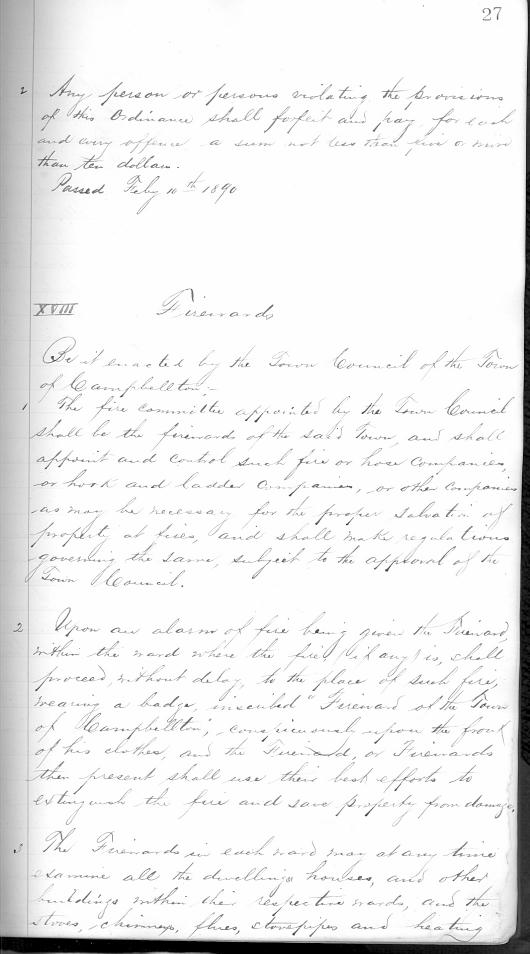 27
2 Any person or persons violating the provisions
of this Ordinance shall forfeit and pay for each
and every offence a sum not less than five or more
than ten dollars.
Passed Feby 10th 1890
XVIII Firewards
Be it enacted by the Town Council of the Town
of Campbellton,-
1 The fire committee appointed by the Town Council
shall be the firewards of the said Town, and shall
appoint and control such fire or hose companies,
or hook and ladder companies, or other companies
as may be necessary for the proper salvation of
property at fires, and shall make regulations
governing the same, subject to the approval of the
Town Council.
2 Upon an alarm of fire being given the Fireward,
within the ward where the fire (if any) is, shall
proceed, without delay, to the place of such fire,
wearing a badge, inscribed "Fireward of the Town
of Campbellton", conspicuously upon the front
of his clothes, and the Fireward, or Firewards
then present shall use their best efforts to
extinguish the fire and save property from damage.
3 The Firewards in each ward may at any time
examine all the dwelling houses, and other
buildings within their respective wards, and the
stoves, chimneys, flues, stovepipes and heating